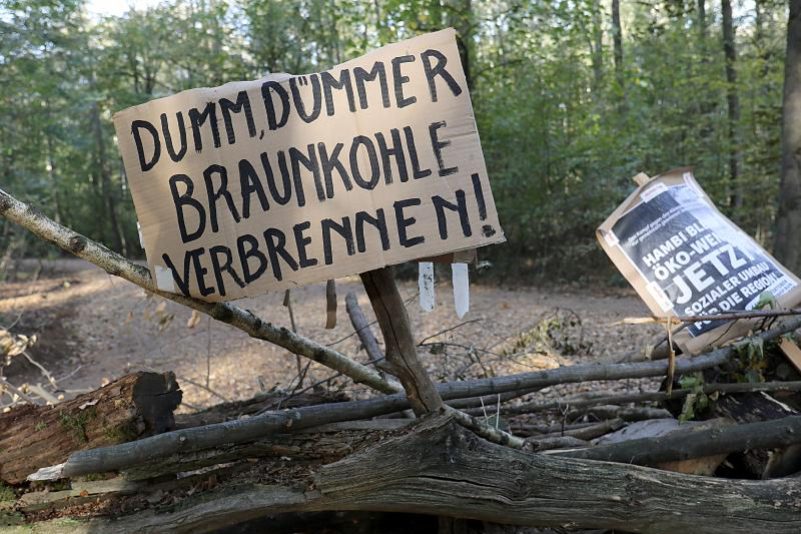 DUMM, DÜMMER
BRAUNKOHLE
VERBRENNEN!
HAMBI
ÖKO-
JETZT
SOZIALER UMBAU
FÜR DIE REGION